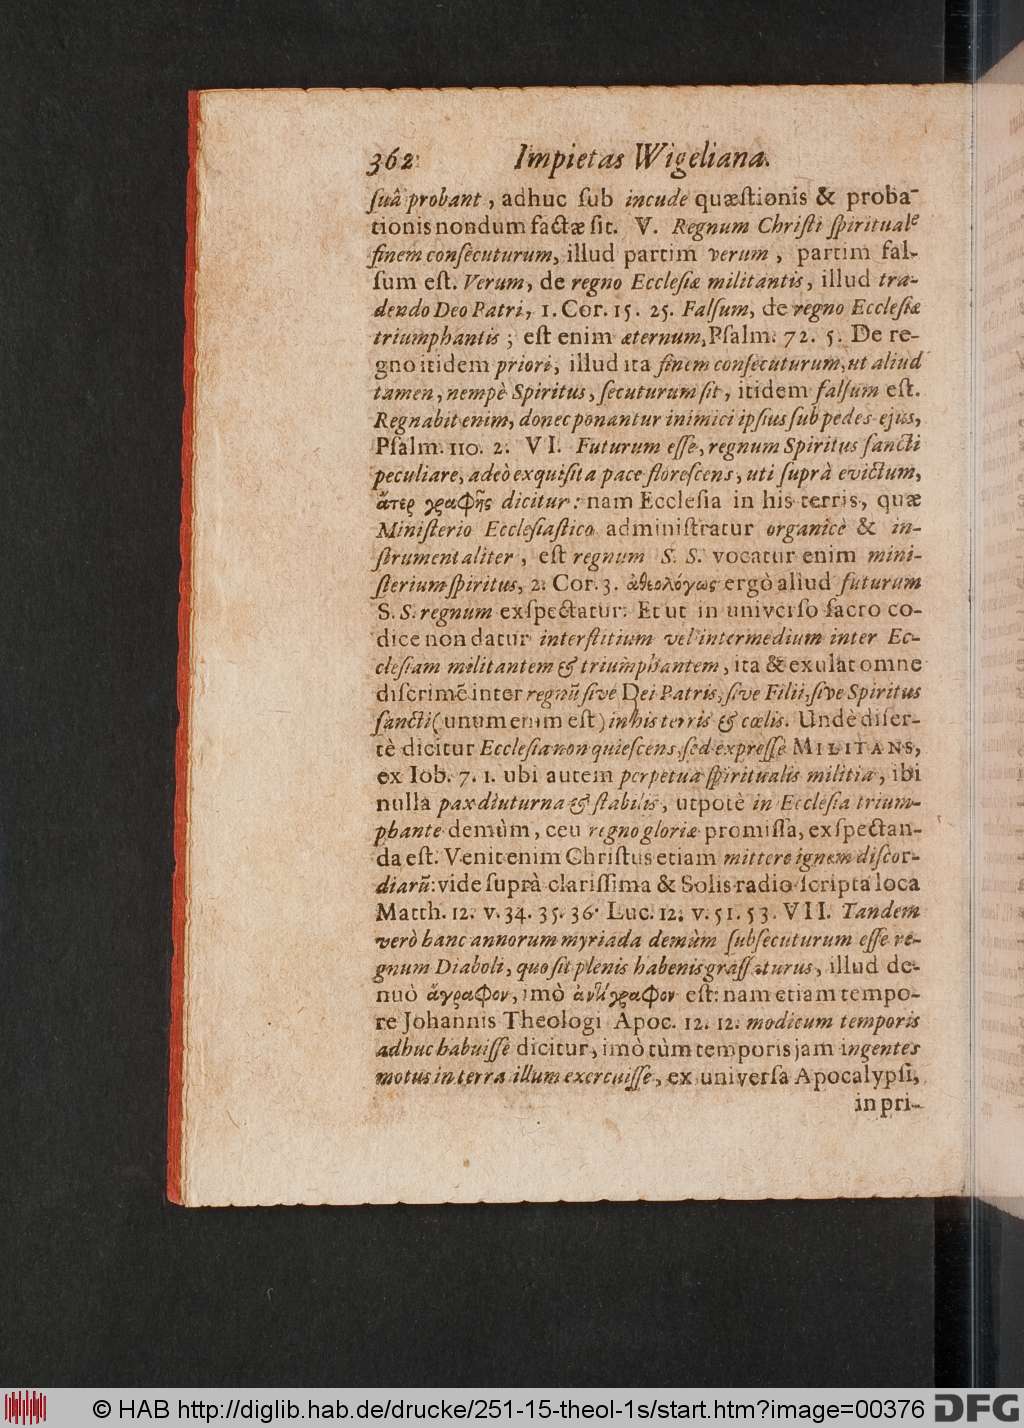 362 Impietas Wigeliana.
ſuâ probant, adhuc ſub incude quæſtionis & proba-
tionis nondum factæ ſit. V. Regnum Chriſti ſpirituale
finem conſecuturum, illud partim verum, partim fal-
ſum eſt. Verum, de regno Eccleſiæ militantis, illud tra-
dendo Deo Patri, 1. Cor. 15. 25. Falſum, de regno Eccleſiæ
triumphantis; eſt enim æternum, Pſalm. 72. 5. De re-
gno itidem priori, illud ita finem conſecuturum, ut aliud
tamen, nempè Spiritus, ſecuturum ſit, itidem falſum eſt.
Regnabit enim, donec ponantur inimici ipſius ſub pedes ejus,
Pſalm. 110. 2. VI. Futurum eſſe, regnum Spiritus ſancti
peculiare, adeò exquiſita pace floreſcens, uti ſuprà evictum,
ἄτερ γραφῆς dicitur: nam Eccleſia in his terris, quæ
Miniſterio Eccleſiaſtico adminiſtratur organicè & in-
ſtrumentaliter, eſt regnum S. S. vocatur enim mini-
ſterium ſpiritus, 2. Cor. 3. ἀθεολόγως ergò aliud futurum
S. S. regnum exſpectatur. Et ut in univerſo ſacro co-
dice non datur interſtitium vel intermedium inter Ec-
cleſiam militantem & triumphantem, ita & exulat omne
diſcrimē inter regnū ſive Dei Patris, ſive Filii, ſive Spiritus
ſancti (unum enim eſt) in his terris & cœlis. Undè diſer-
tè dicitur Eccleſia non quieſcens, ſed expreſſè MILITANS,
ex Iob. 7. 1. ubi autem perpetua ſpiritualis militia, ibi
nulla pax diuturna & ſtabilis, utpotè in Eccleſia trium-
phante demùm, ceu regno gloriæ promiſſa, exſpectan-
da eſt. Venit enim Chriſtus etiam mittere ignem diſcor-
diarū: vide ſuprà clariſſima & Solis radio ſcripta loca
Matth. 12. v. 34. 35. 36. Luc. 12. v. 51. 53. VII. Tandem
verò hanc annorum myriada demùm ſubſecuturum eſſe re-
gnum Diaboli, quo ſit plenis habenis graſſaturus, illud de-
nuò ἄγραφον, imò ἀντίγραφον eſt: nam etiam tempo-
re Johannis Theologi Apoc. 12. 12. modicum temporis
adhuc habuiſſe dicitur, imò tùm temporis jam ingentes
motus in terra illum exercuiſſe, ex univerſa Apocalypſi,
in pri-
© HAB http://diglib.hab.de/drucke/251-15-theol-1s/start.htm?image=00376 DFG